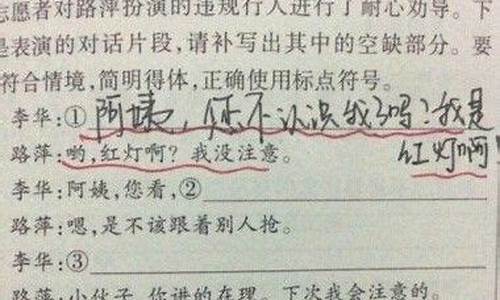 志愿者对路萍扮演的违规行人进行了耐心劝导。下
是表演的对话片段,请补写出其中的空缺部分。要
符合情境,简明得体,正确使用标点符号。
李华:①阿姨,您不认识我了吗?我是
红灯啊
路萍:哟,红灯啊?我没注意。
李华:阿姨,您看,②
路萍:嗯,是不该跟着别人抢。
李华:③
路萍:小伙子,你讲的在理。下次我会注意的。